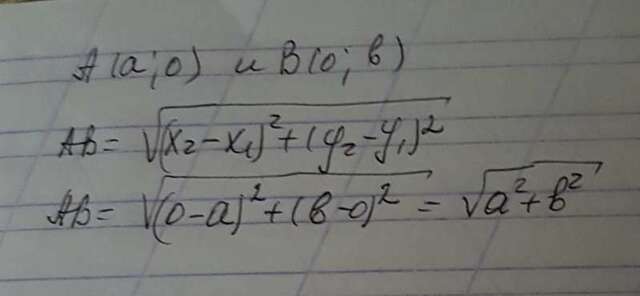 A(a;0) и B(0;в)
AB = √(x₂-x₁)²+(y₂-y₁)²
AB = √(0-a)²+(в-0)² = √a²+в²